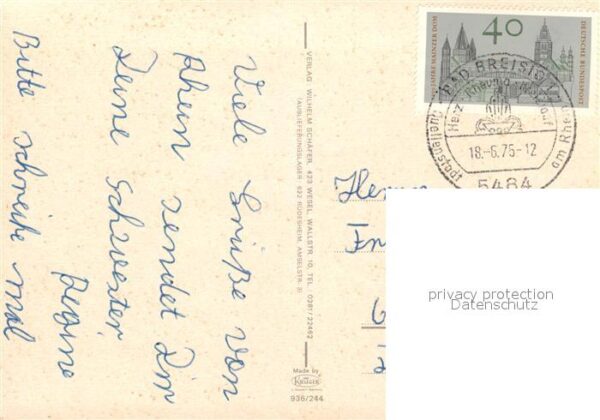 Viele Grüße vom
Rhein sendet Dir
Deine Schwester
Regine
Bitte schreibe mal
VERLAG WILHELM SCHÄFER, 423 WESEL, WALLSTR. 10, TEL. 0281/22462
(AUSLIEFERUNGSLAGER: 622 RÜDESHEIM, AMSELSTR. 3)
Made by
KRÜGER
936/244
40
1000 JAHRE MAINZER DOM
DEUTSCHE BUNDESPOST
BAD BREISIG
Quellenstadt
am Rhein
18.-6.75-12
5484
Herrn
privacy protection
Datenschutz